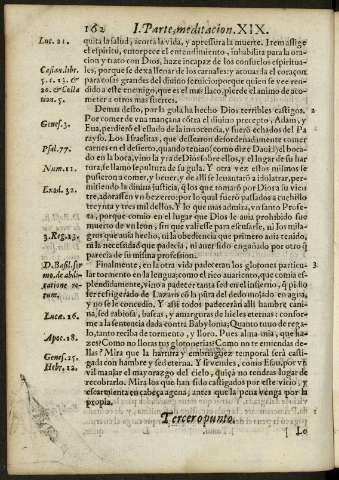 162 I. Parte, meditacion. XIX.
Luc. 21. quita la salud, acorta la vida, y apresura la muerte. Item aflige
el espiritu, entorpece el entendimiento, inhabilita para la ora-
cion y trato con Dios, haze incapaz de los consuelos espiritua-
Casian. libr. les, porque se dexa llenar de los carnales: y acouarda el coraçon
5. c. 13. & para cosas grandes del diuino seruicio: porque quien se vee ren-
20. & Colla dido a este enemigo, que es el mas flaco, pierde el animo de aco-
tion. 5. meter a otros mas fuertes.
Demas desto, por la gula ha hecho Dios terribles castigos. 2
Por comer de vna mançana cõtra el diuino precepto, Adam, y
Genes. 3. Eua, perdierõ el estado de la inocencia, y fuerõ echados del Pa
rayso. Los Israelitas, que dessearon desordenadamente comer
Psal. 77. carnes en el desierto, quando tenian (como dize Dauid) el boca-
do en la boca, vino la yra de Dios sobre ellos, y el lugar de su har
Num. 11. tura, fue llamo sepultura de su gula. Y otra vez ellos mismos se
pusierõ a comer, y beuer, y de alli se leuantarõ a idolatrar, per-
Exod. 32. mitiendo la diuina justicia, q̃ los que tomarõ por Dios a su vien
tre, adorassen vn bezerro: por lo qual fuerõ passados a cuchillo
treynta y tres mil dellos. Y lo que mas admira, vn santo Profe-
ta, porque comio en el lugar que Dios le auia prohibido fue
muerto de vn leon, sin que valiesse para escusarle, ni los mila-
3. Reg. 13. gros que auia hecho, ni la obediencia que primero auia tenido,
ni la necessidad que padecia, ni auer sido engañado por otro q̃
parecia de su misma profession.
D. Basil. ser Finalmente, en la otra vida padeceran los glotones particu- 3.
mo. de abdi lar tormento en la lengua: como el rico auariento, que comia es-
catione re- plendidamente, vino a padecer tanta sed en el infierno, q̃ pidio
rum. ser refrigerado de Lazaro cõ la pũta del dedo mojado en agua,
y no se le concedio. Y assi todos padecerán alli hambre cani-
Lucæ. 16. na, sed rabiosa, bascas, y amarguras de hieles eternas: confor-
me a la sentencia dada contra Babylonia; Quanto tuuo de rega-
Apoc. 18. do, tanto reciba de tormento, y lloro. Pues alma mia, que ha-
zes? Como no lloras tus glotonerias? Como no te enmiendas de-
Genes. 25. llas? Mira que la hartura y embriaguez temporal será casti-
Hebr. 12. gada con hambre y sed eterna. Y si vendes, como Esau, por vn
vil manjar el mayorazgo del cielo, quiçà no tendras lugar de
recobrarlo. Mira los que han sido castigados por este vicio, y
escarmienta en cabeça agena; antes que la pena venga por la
propia.
Tercero punto.
Lo